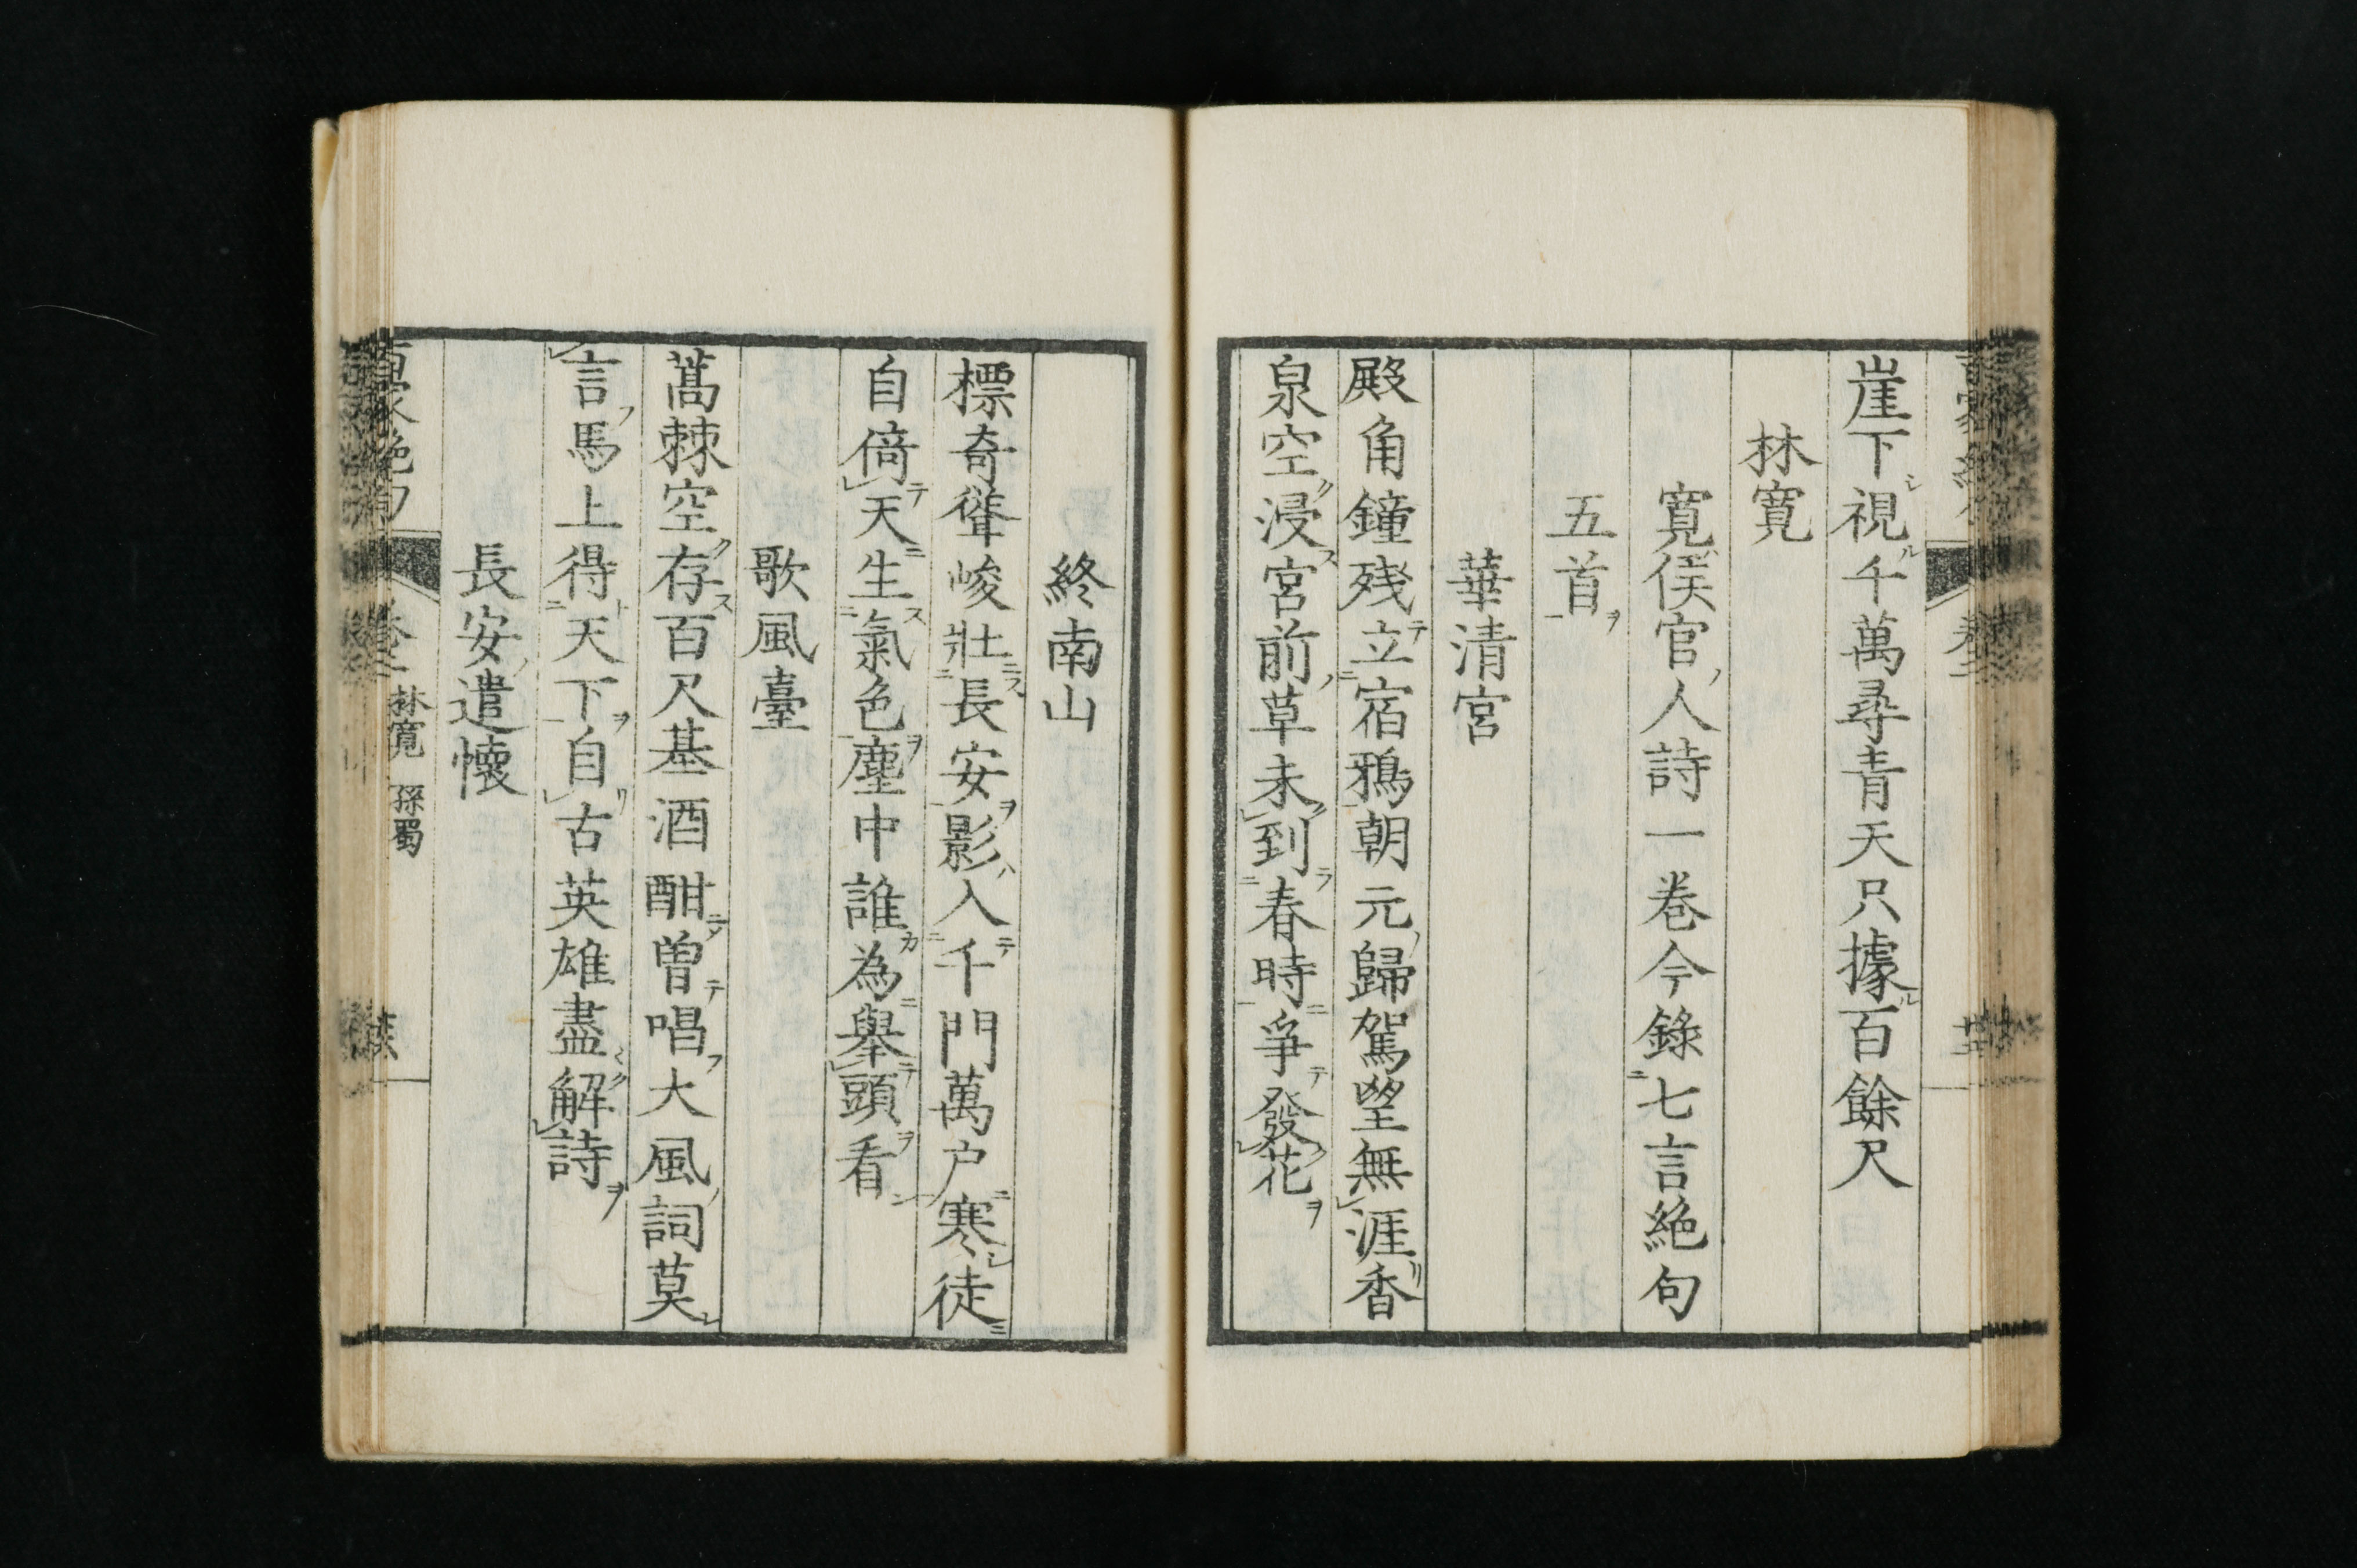 崖下視千萬尋青天只據百餘尺
林寬
寬侯官人詩一卷今錄七言絶句
五首
華清宮
殿角鐘残立宿鴉朝元歸駕望無涯香
泉空浸宮前草未到春時爭發花
終南山
標奇聳峻壯長安影入千門萬户寒徒
自倚天生氣色塵中誰為舉頭看
歌風臺
蒿棘空存百尺基酒酣曽唱大風詞莫
言馬上得天下自古英雄盡解詩
長安遣懐
林寬 孫蜀